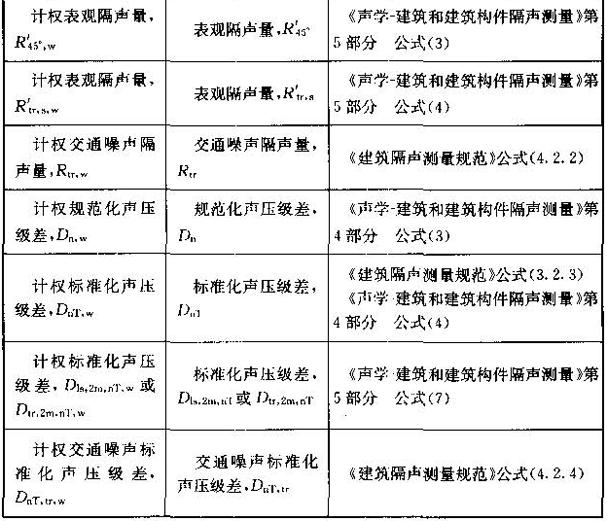 计权表观隔声量,
R′45°,w
表观隔声量,R′45°
《声学-建筑和建筑构件隔声测量》第
5部分 公式(3)
计权表观隔声量,
R′tr,s,w
表观隔声量,R′tr,s
《声学-建筑和建筑构件隔声测量》第
5部分 公式(4)
计权交通噪声隔
声量,Rtr,w
交通噪声隔声量,
Rtr
《建筑隔声测量规范》公式(4.2.2)
计权规范化声压
级差,Dn,w
规范化声压级差,
Dn
《声学-建筑和建筑构件隔声测量》第
4部分 公式(3)
计权标准化声压
级差,DnT,w
标准化声压级差,
DnT
《建筑隔声测量规范》公式(3.2.3)
《声学-建筑和建筑构件隔声测量》第
4部分 公式(4)
计权标准化声压
级差,Dls,2m,nT,w或
Dtr,2m,nT,w
标准化声压级差,
Dls,2m,nT或Dtr,2m,nT
《声学-建筑和建筑构件隔声测量》第
5部分 公式(7)
计权交通噪声标
准化声压级差,
DnT,tr,w
交通噪声标准化
声压级差,DnT,tr
《建筑隔声测量规范》公式(4.2.4)